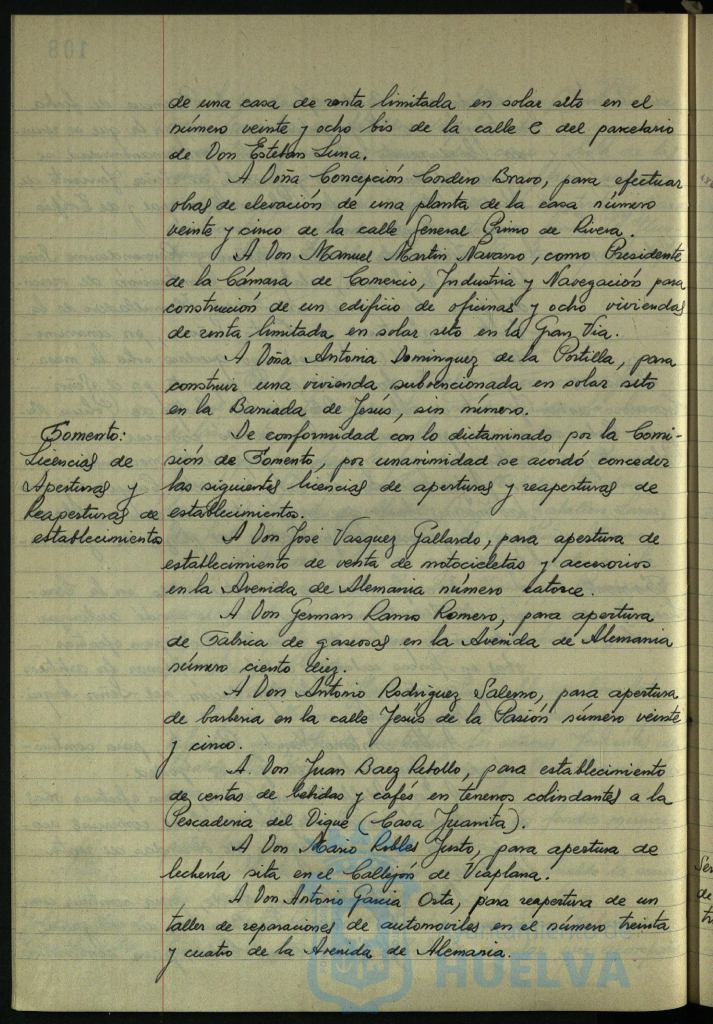 de una casa de renta limitada en solar sito en el
número veinte y ocho bis de la calle C del parcelario
de Don Esteban Luna.
A Doña Concepción Cordero Bravo, para efectuar
obras de elevación de una planta de la casa número
veinte y cinco de la calle General Primo de Rivera.
A Don Manuel Martin Navarro, como Presidente
de la Cámara de Comercio, Industria y Navegación para
construcción de un edificio de oficinas y ocho viviendas
de renta limitada en solar sito en la Gran Via.
A Doña Antonia Dominguez de la Portilla, para
construir una vivienda subvencionada en solar sito
en la Barriada de Jesús, sin número.
Fomento:
Licencias de
Aperturas y
Reaperturas de
establecimientos
De conformidad con lo dictaminado por la Comi-
sión de Fomento, por unanimidad se acordó conceder
las siguientes licencias de aperturas y reaperturas de
establecimientos.
A Don José Vasquez Gallardo, para apertura de
establecimiento de venta de motocicletas y accesorios
en la Avenida de Alemania número catorce.
A Don German Ramo Romero, para apertura
de Fabrica de gaseosas en la Avenida de Alemania
número ciento diez.
A Don Antonio Rodriguez Salerno, para apertura
de barberia en la calle Jesús de la Pasión número veinte
y cinco.
A. Don Juan Baez Rebollo, para establecimiento
de ventas de bebidas y cafés en terrenos colindantes a la
Pescaderia del Dique (Casa Juanita).
A Don Mario Robles Justo, para apertura de
lechería sita en el Callejón de Viaplana.
A Don Antonio Garcia Orta, para reapertura de un
taller de reparaciones de automoviles en el número treinta
y cuatro de la Avenida de Alemania.
HUELVA